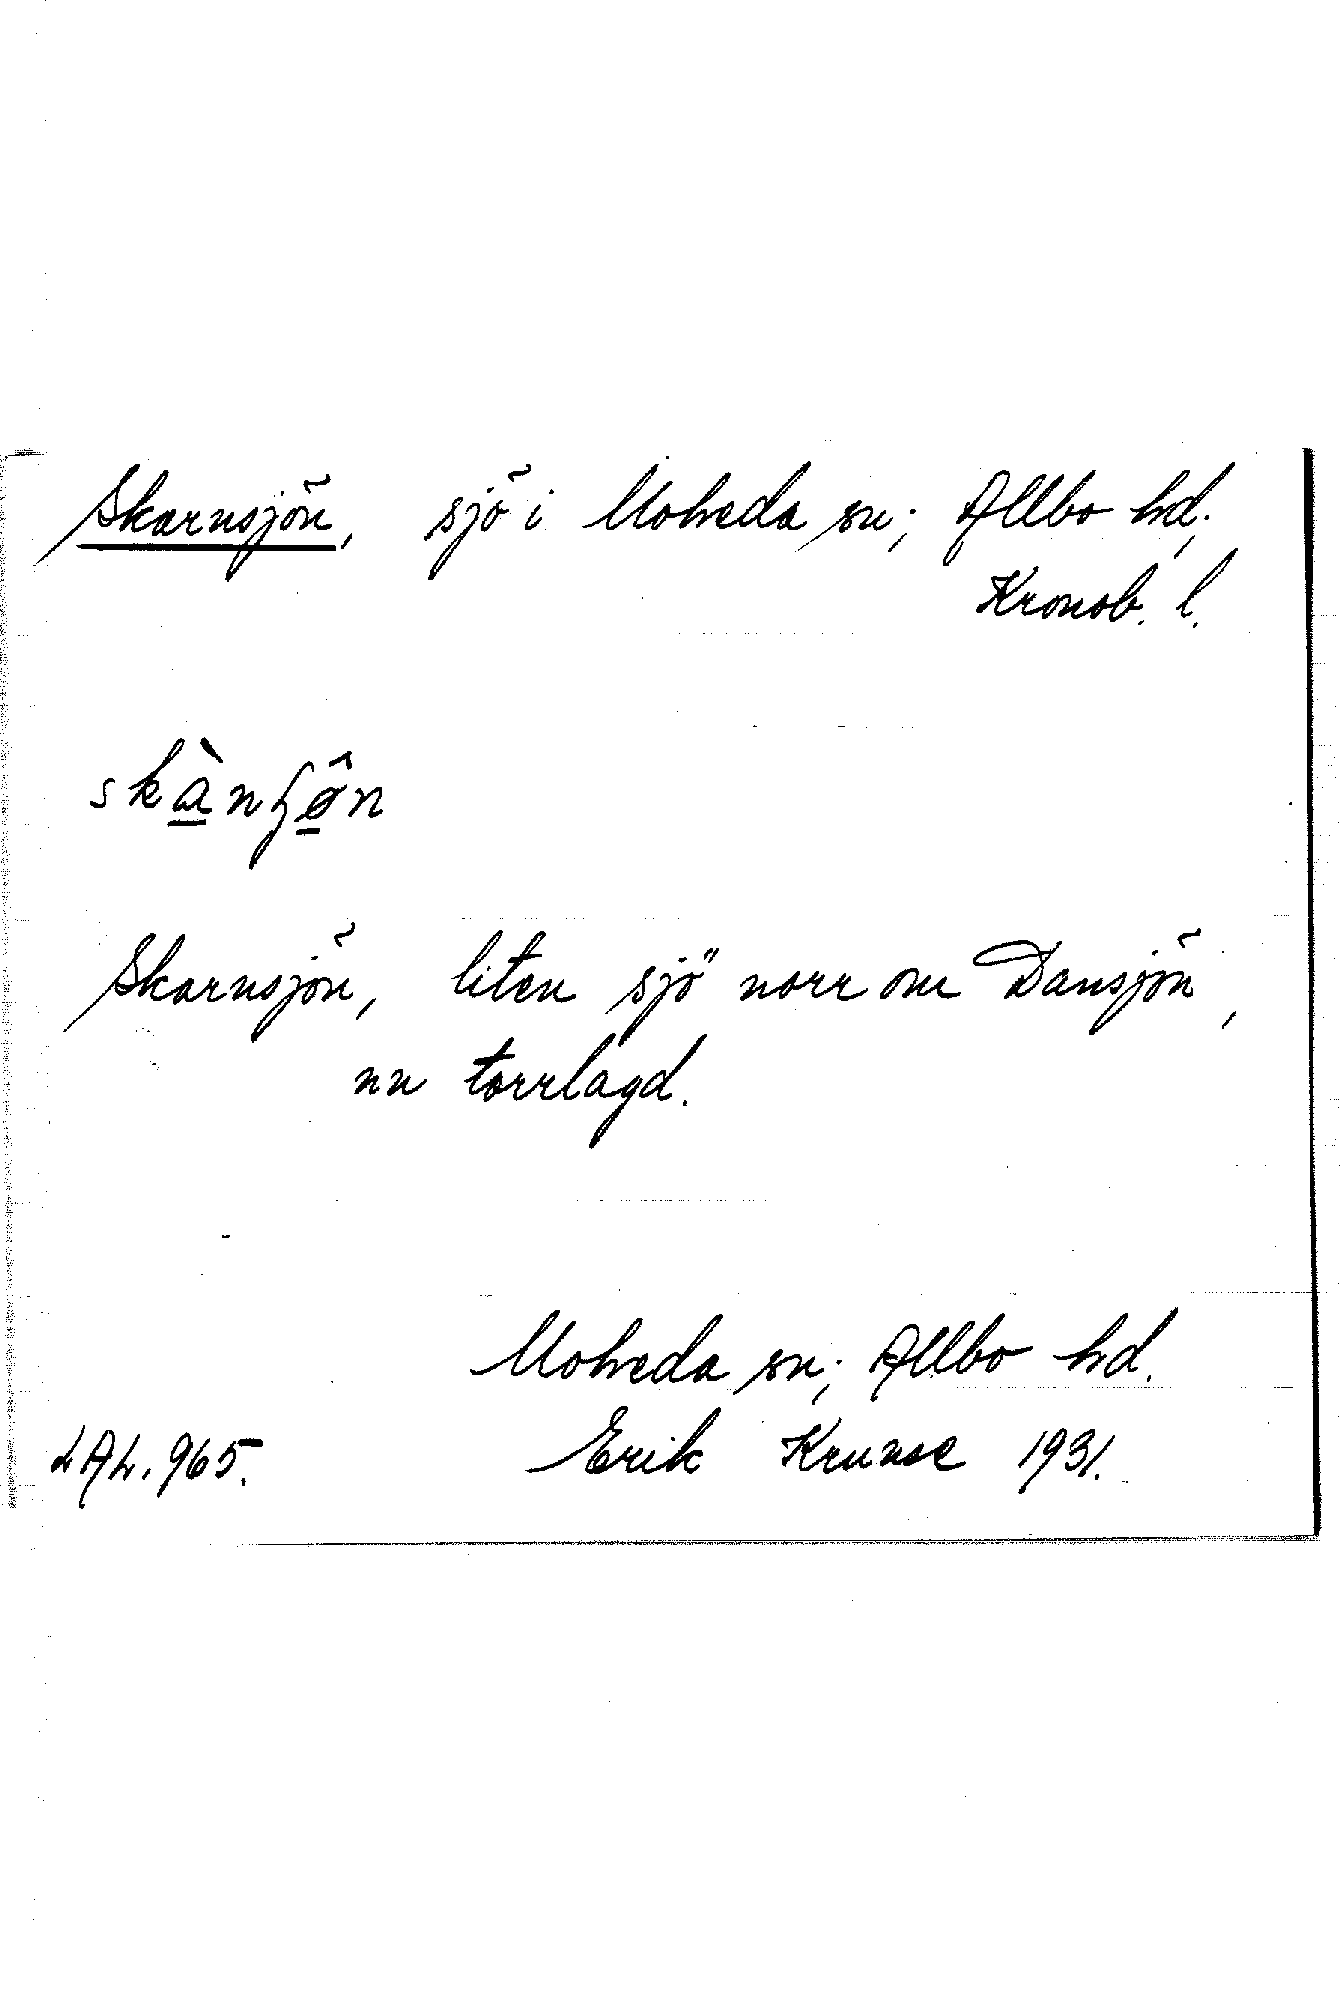 Skarnsjön, sjö i Moheda sn; Allbo hd;
Kronob. l.
Skarnsjön, liten sjö norr om Dansjön,
nu torrlagd.
Moheda sn; Allbo hd.
LAL. 965. Erik Kruuse 1931.